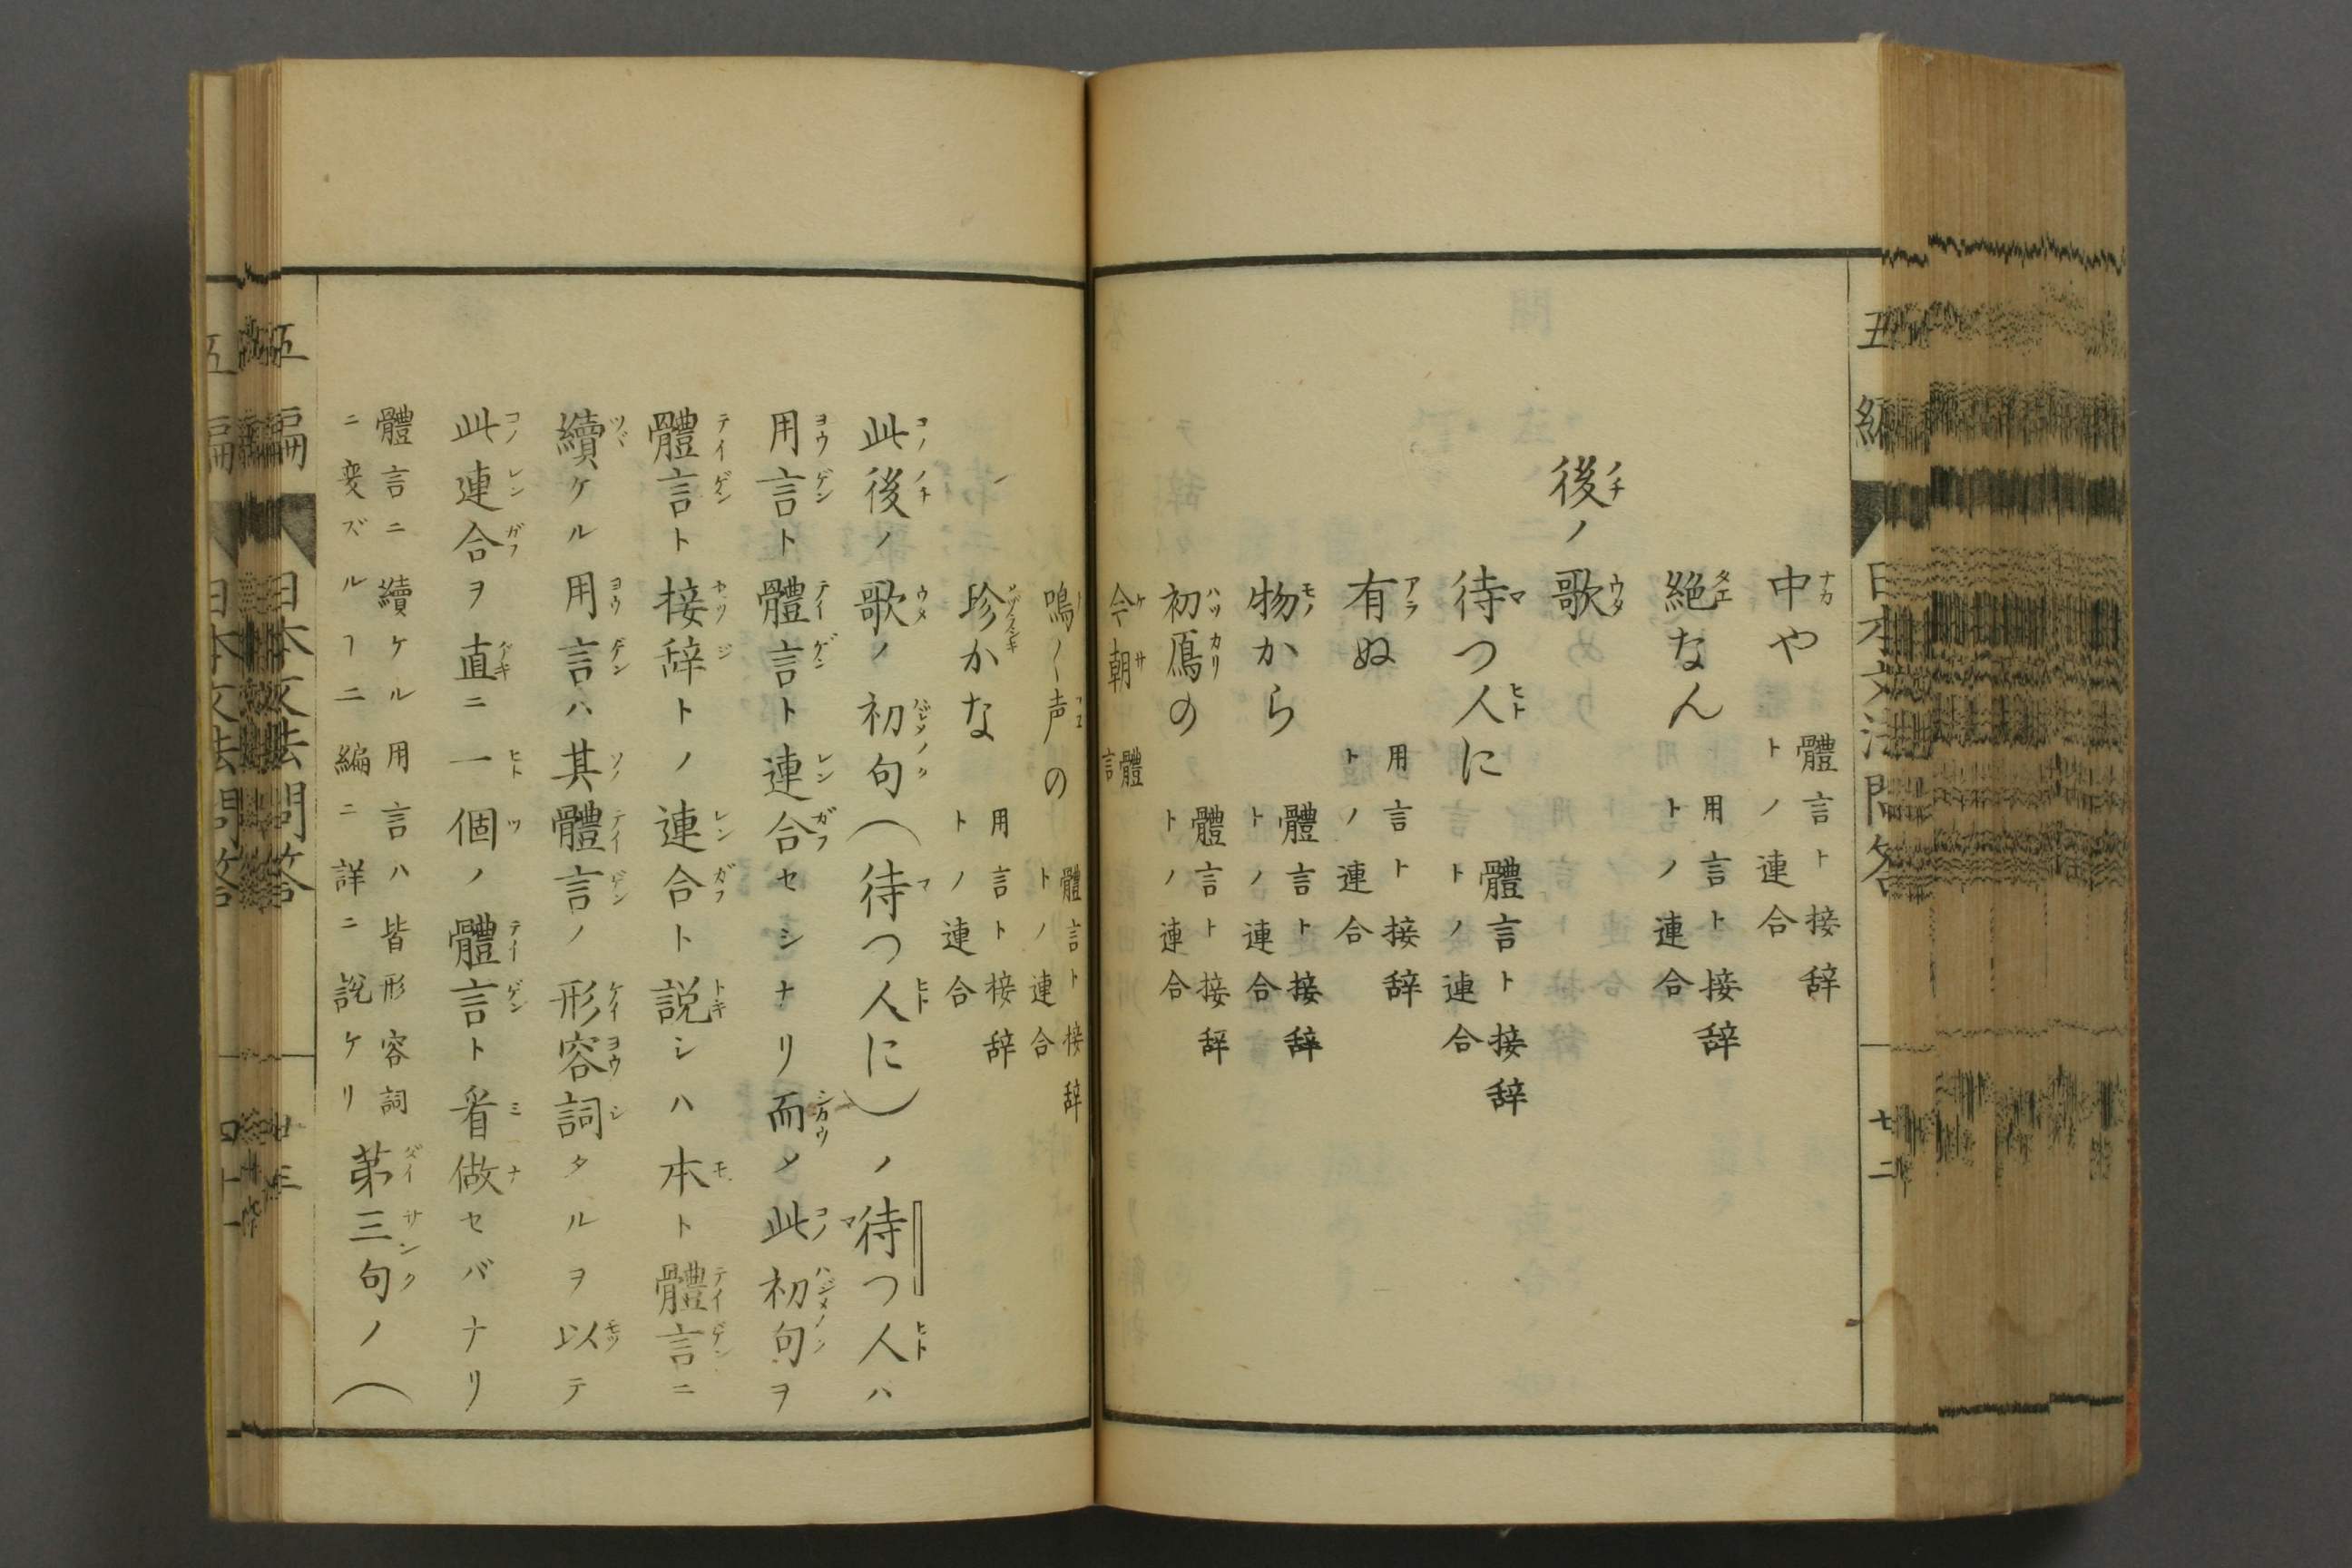 五編
日本文法問答
七二
中や 體言ト接辞トノ連合
絶なん 用言ト接辞トノ連合
後ノ歌
待つ人に 體言ト接辞トノ連合
有ぬ 用言ト接辞トノ連合
物から 體言ト接辞トノ連合
初鳫の 體言ト接辞トノ連合
今朝 體言
鳴く声の 體言ト接辞トノ連合
珍かな 用言ト接辞トノ連合
此後ノ歌ノ初句(待つ人に)ノ待つ人ハ
用言ト體言ト連合セシナリ而メ此初句ヲ
體言ト接辞トノ連合ト説シハ本ト體言ニ
續ケル用言ハ其體言ノ形容詞タルヲ以テ
此連合ヲ直ニ一個ノ體言ト看做セバナリ
體言ニ續ケル用言ハ皆形容詞
ニ変ズルヿ二編ニ詳ニ説ケリ
第三句ノ(
五編
日本文法問答